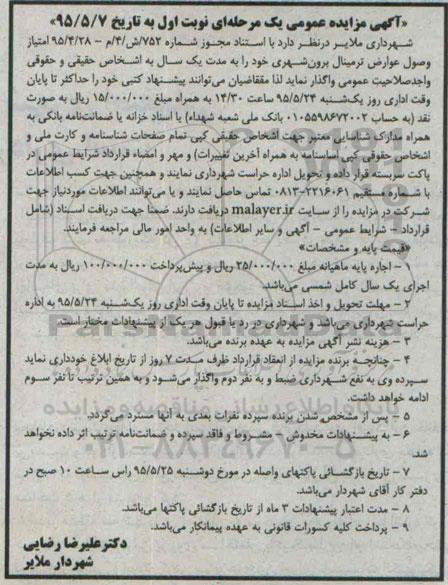 «آگهی مزایده عمومی یک مرحله‌ای نوبت اول به تاریخ ۹۵/۵/۷»
شهرداری ملایر درنظر دارد با استناد مجوز شماره ۷۵۲/ش/۴/م – ۹۵/۴/۲۸ امتیاز
وصول عوارض ترمینال برون‌شهری خود را به مدت یک سال به اشخاص حقیقی و حقوقی
واجدصلاحیت عمومی واگذار نماید لذا متقاضیان می‌توانند پیشنهاد کتبی خود را حداکثر تا پایان
وقت اداری روز یک‌شنبه ۹۵/۵/۲۴ ساعت ۱۴/۳۰ به همراه مبلغ ۱۵/۰۰۰/۰۰۰ ریال به صورت
نقد (به حساب ۰۱۰۵۵۹۸۶۷۲۰۰۲ بانک ملی شعبه شهداء) یا اسناد خزانه یا ضمانت‌نامه بانکی به
همراه مدارک شناسایی معتبر جهت اشخاص حقیقی کپی تمام صفحات شناسنامه و کارت ملی و
اشخاص حقوقی کپی اساسنامه به همراه آخرین تغییرات) و مهر و امضاء قرارداد شرایط عمومی در
پاکت سربسته قرار داده و تحویل اداره حراست شهرداری نمایند و همچنین جهت کسب اطلاعات
با شماره مستقیم ۰۸۱۳-۲۲۱۶۰۶۱ تماس حاصل نمایند و یا می‌توانند اطلاعات موردنیاز جهت
شرکت در مزایده را از سایت malayer.ir دریافت دارند. ضمناً جهت دریافت اسناد (شامل
قرارداد – شرایط عمومی – آگهی و سایر اطلاعات) به واحد امور مالی مراجعه فرمایند.
«قیمت پایه و مشخصات»
۱ – اجاره پایه ماهیانه مبلغ ۲۵/۰۰۰/۰۰۰ ریال و پیش‌پرداخت ۱۰۰/۰۰۰/۰۰۰ ریال به مدت
اجرای یک سال کامل شمسی می‌باشد.
۲ – مهلت تحویل و اخذ اسناد مزایده تا پایان وقت اداری روز یک‌شنبه ۹۵/۵/۲۴ به اداره
حراست شهرداری می‌باشد و شهرداری در رد یا قبول هر یک از پیشنهادات مختار است.
۳ – هزینه نشر آگهی مزایده به عهده برنده می‌باشد.
۴ – چنانچه برنده مزایده از انعقاد قرارداد ظرف مدت ۷ روز از تاریخ ابلاغ خودداری نماید
سپرده وی به نفع شهرداری ضبط و به نفر دوم واگذار می‌شود و به همین ترتیب تا نفر سوم
ادامه خواهد داشت.
۵ – پس از مشخص شدن برنده سپرده نفرات بعدی به آنها مسترد می‌گردد.
۶ – به پیشنهادات مخدوش – مشروط و فاقد سپرده و ضمانت‌نامه ترتیب اثر داده نخواهد
شد.
۷ – تاریخ بازگشائی پاکتهای واصله در مورخ دوشنبه ۹۵/۵/۲۵ راس ساعت ۱۰ صبح در
دفتر کار آقای شهردار می‌باشد.
۸ – مدت اعتبار پیشنهادات ۳ ماه از تاریخ بازگشائی پاکتها می‌باشد.
۹ – پرداخت کلیه کسورات قانونی به عهده پیمانکار می‌باشد.
دکترعلیرضا رضایی
شهردار ملایر
ParsNamadData
۰۲۱-۸۸۳۴۹۶۷۰-۵